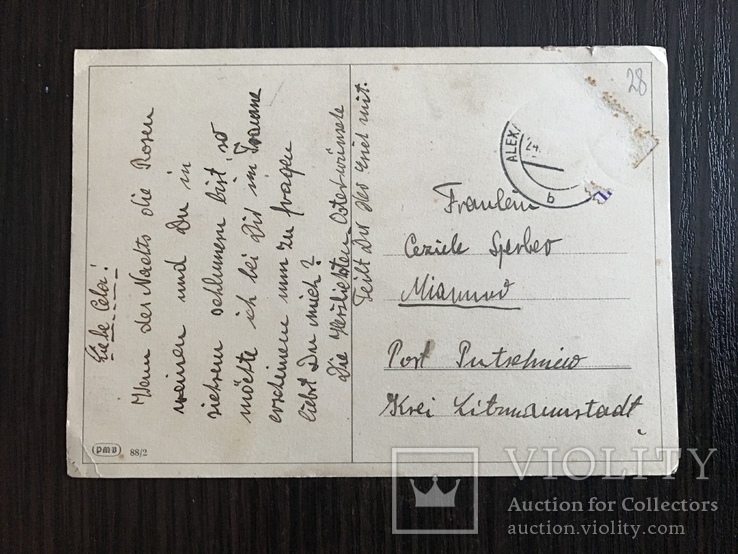 Liebe Cela!
Wenn des Nachts die Rosen
weinen und Du in
schlummern bist, so
möchte ich bei Dir im Traume
erscheinen um zu fragen
liebst Du mich?
Die Herzlichsten Osterwünsche
Teilt Dir der mit.
28
ALEXA
24.
b
Fraulein
Cezile Sperber
Post
Krei Litzmannstadt.
pmv 88/2
VIOLITY
Auction for Collectors
auction.violity.com